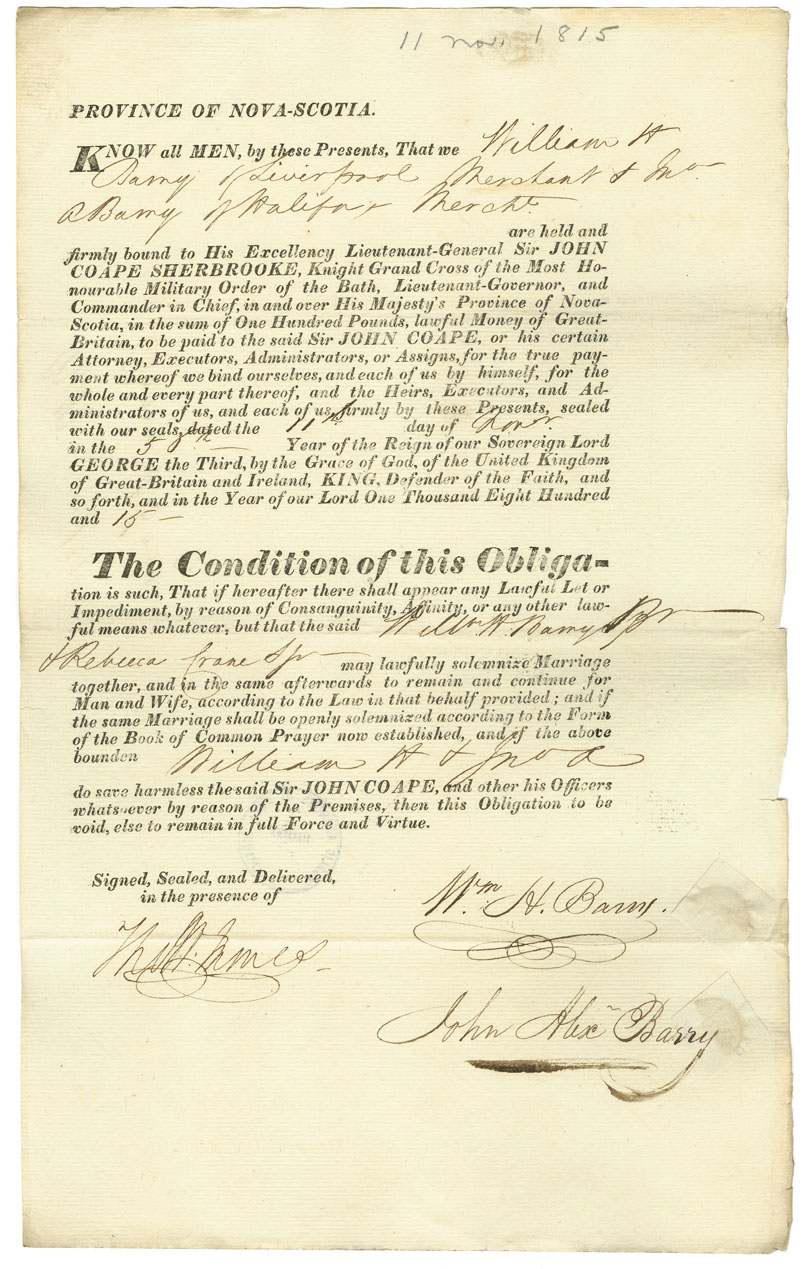 11 Nov. 1815
PROVINCE OF NOVA-SCOTIA.
KNOW all MEN, by these Presents, That we William H
Barry of Liverpool Merchant & Jno
A Barry of Halifax Mercht.
are held and
firmly bound to His Excellency Lieutenant-General Sir JOHN
COAPE SHERBROOKE, Knight Grand Cross of the Most Ho-
nourable Military Order of the Bath, Lieutenant-Governor, and
Commander in Chief, in and over His Majesty's Province of Nova-
Scotia, in the sum of One Hundred Pounds, lawful Money of Great-
Britain, to be paid to the said Sir JOHN COAPE, or his certain
Attorney, Executors, Administrators, or Assigns, for the true pay-
ment whereof we bind ourselves, and each of us by himself, for the
whole and every part thereof, and the Heirs, Executors, and Ad-
ministrators of us, and each of us, firmly by these Presents, sealed
with our seals, dated the 11th day of Novr.
in the Year of the Reign of our Sovereign Lord
GEORGE the Third, by the Grace of God, of the United Kingdom
of Great-Britain and Ireland, KING, Defender of the Faith, and
so forth, and in the Year of our Lord One Thousand Eight Hundred
and 15 —
The Condition of this Obliga-
tion is such, That if hereafter there shall appear any Lawful Let or
Impediment, by reason of Consanguinity, Affinity, or any other law-
ful means whatever, but that the said Willm H. Barry Br
& Rebecca Crane Spr may lawfully solemnize Marriage
together, and in the same afterwards to remain and continue for
Man and Wife, according to the Law in that behalf provided; and if
the same Marriage shall be openly solemnized according to the Form
of the Book of Common Prayer now established, and if the above
bounden William H & Jno A
do save harmless the said Sir JOHN COAPE, and other his Officers
whatsoever by reason of the Premises, then this Obligation to be
void, else to remain in full Force and Virtue.
Signed, Sealed, and Delivered,
in the presence of
Wm H. Barry.
John Alexr Barry